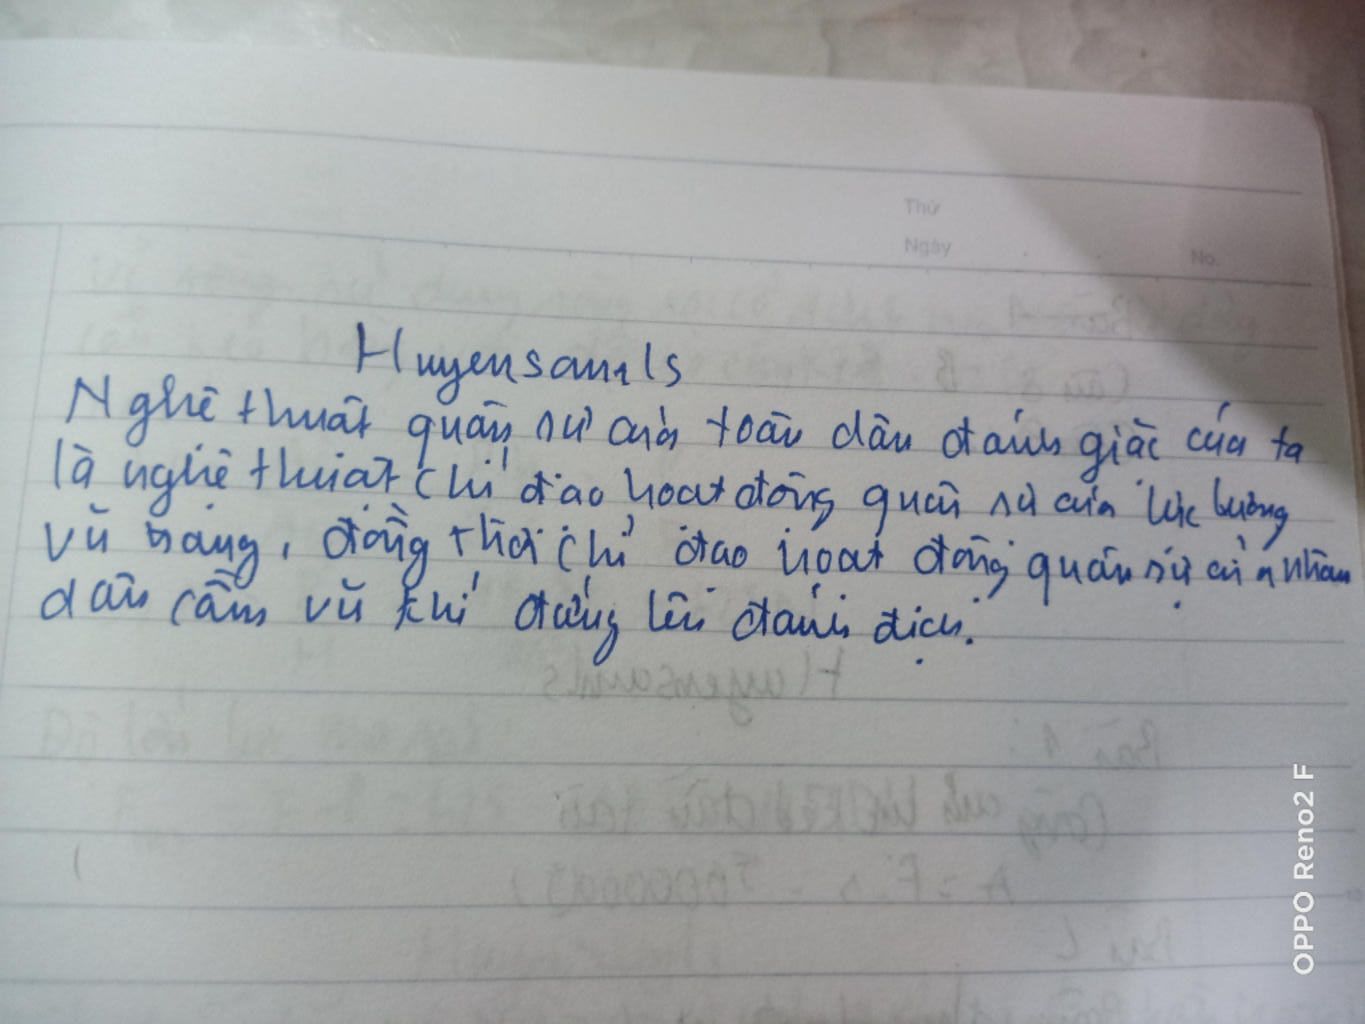 Thứ
Ngày
No.
Huyensamls
Nghệ thuật quân sự của toàn dân đánh giặc của ta
là nghệ thuật chỉ đạo hoạt động quân sự của lực lượng
vũ trang, đồng thời chỉ đạo hoạt động quân sự của nhân
dân cầm vũ khí đứng lên đánh địch.
OPPO Reno2 F